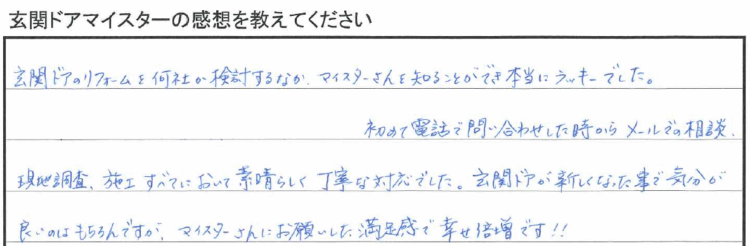 玄関ドアマイスターの感想を教えてください
玄関ドアのリフォームを何社か検討するなか、マイスターさんを知ることができ本当にラッキーでした。
初めて電話で問い合わせした時からメールでの相談、
現地調査、施工すべてにおいて素晴らしく丁寧な対応でした。玄関ドアが新しくなった事で気分が
良いのはもちろんですが、マイスターさんにお願いした満足感で幸せ倍増です!!